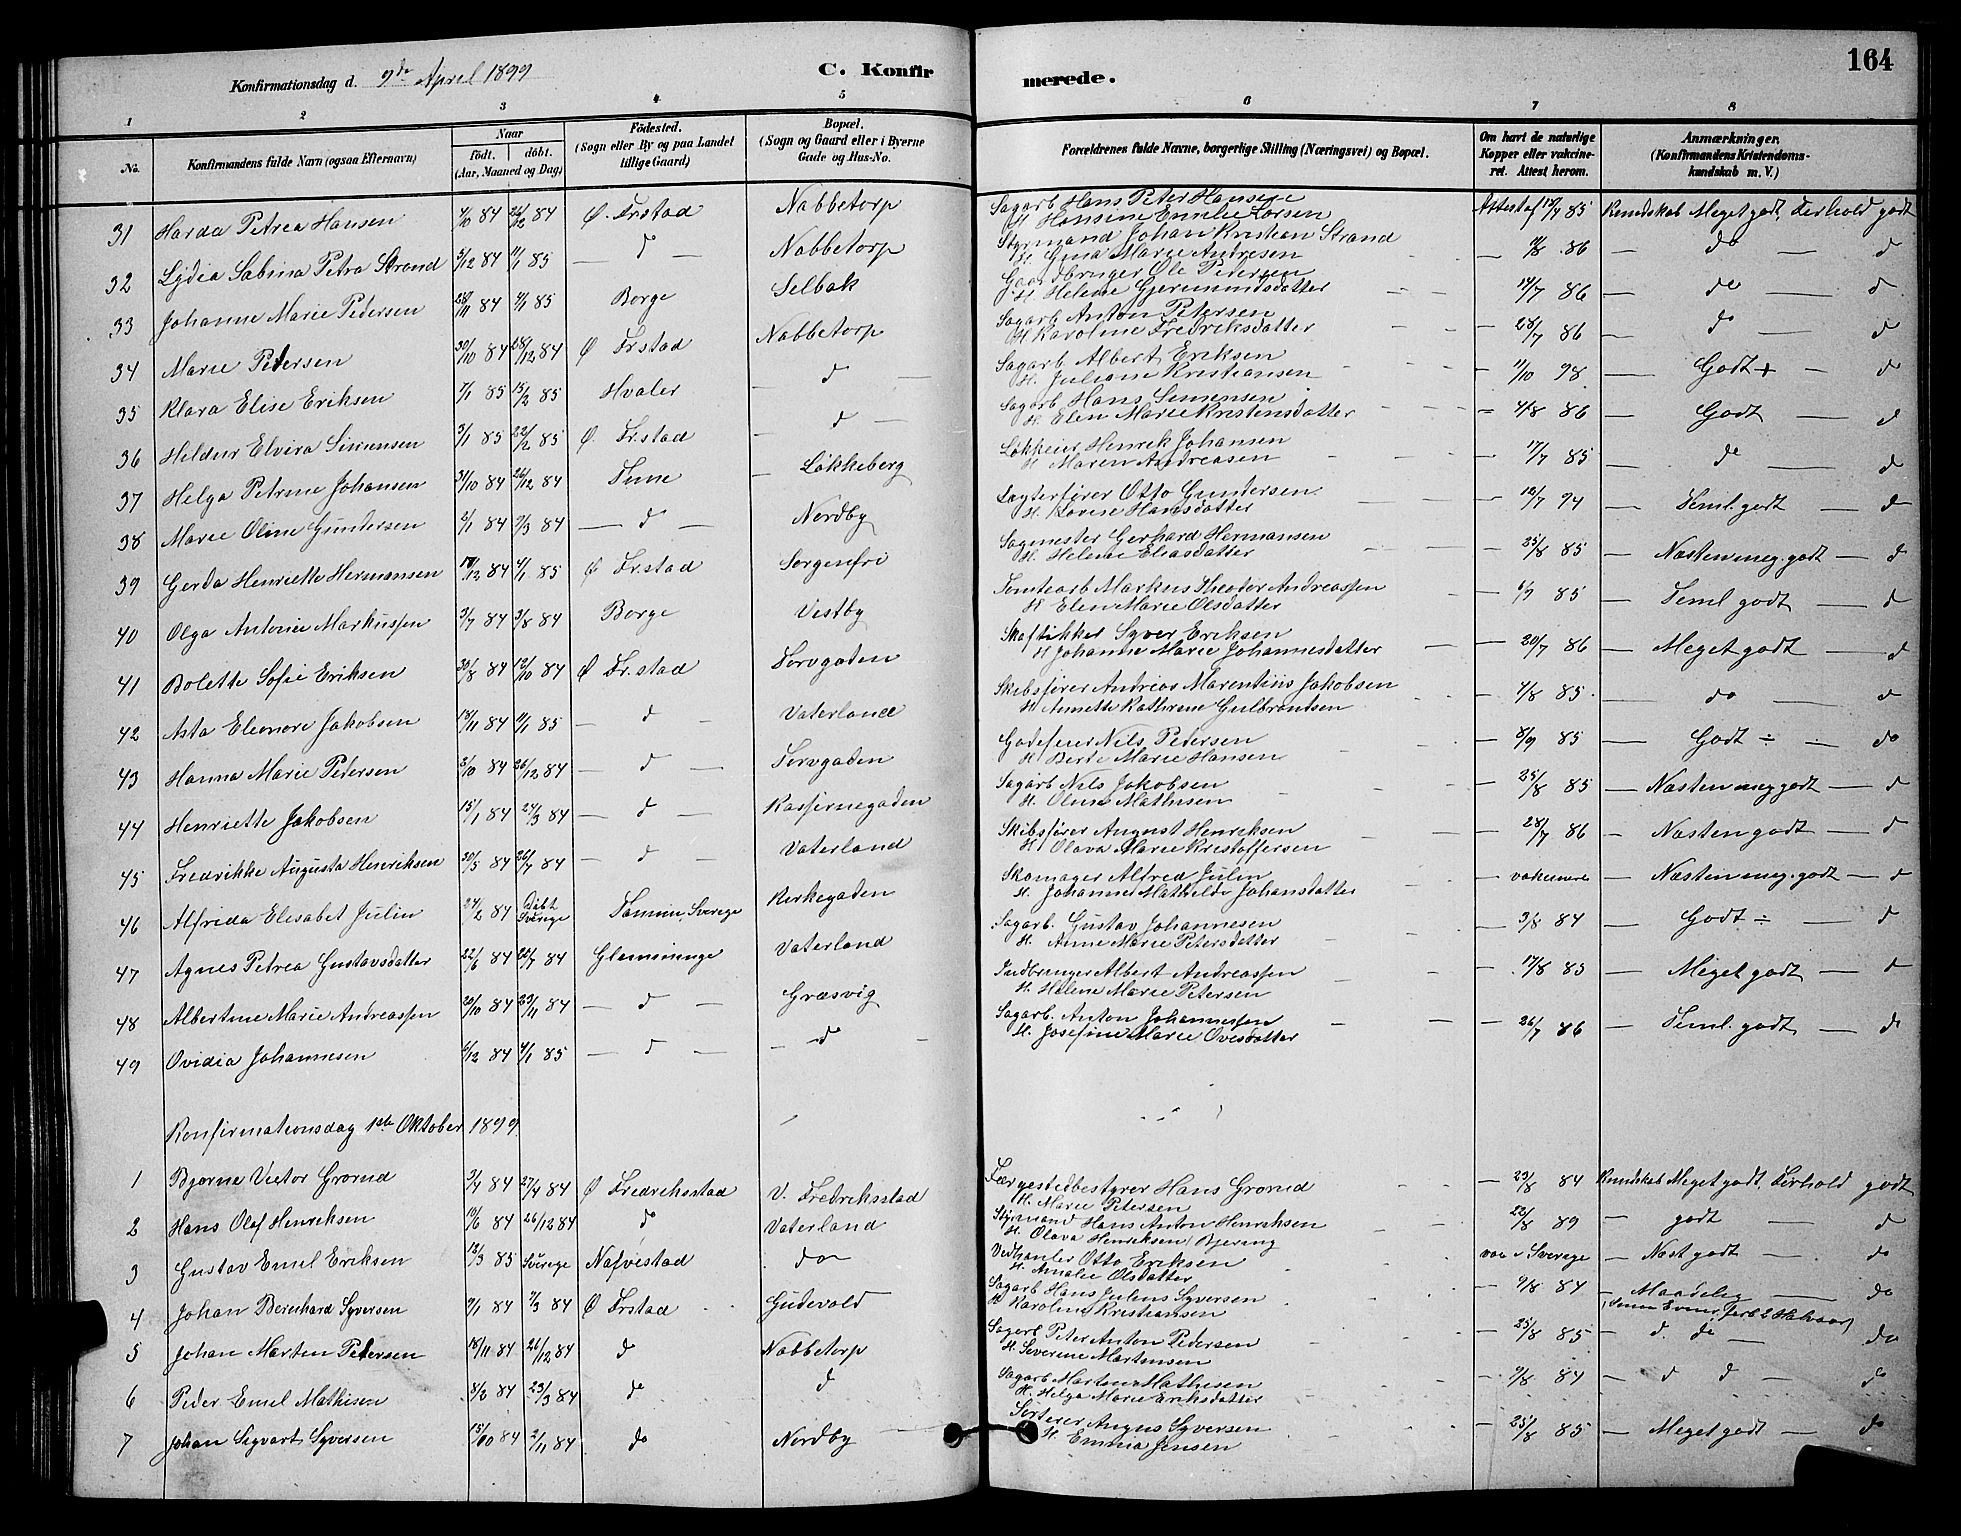 164
Konfirmationsdag d. 9de April 1899
C. Konfirmerede.
1 2 3 4 5 6 7 8
No.
Konfirmandens fulde Navn (ogsaa Efternavn)
Naar født. døbt. (Aar, Maaned og Dag)
Fødested. (Sogn eller By og paa Landet tillige Gaard)
Bopæl. (Sogn og Gaard eller i Byerne Gade og Hus-No.
Forældrenes fulde Navne, borgerlige Stilling (Næringsvei) og Bopæl.
Om havt de naturlige Kopper eller vakcineret. Attest herom.
Anmærkninger. (Konfirmandens Kristendomskundskab m. V.)
31 Harda Petrea Hansen 4/10 84 26/12 84 Ø. Frstad Nabbetorp Sagarb Hans Peter Hansen Attest af 18/7 85 Kundskab Meget godt, Forhold godt
H. Hansine Emilie Larsen
32 Lydia Sabina Petra Strand 5/12 84 11/1 85 — d — Nabbetorp Styrmand Johan Kristian Strand — 9/8 86 — do — d
H. Gina Marie Andresen
33 Johanne Marie Pedersen 28/11 84 4/1 85 Borge Selbak Gaardbruger Ole Pedersen — 14/7 86 — do — d
H. Helene Gjermundsdatter
34 Marie Petersen 30/10 84 28/12 84 Ø Frstad Nabbetorp Sagarb Anton Petersen — 28/7 86 — do — d
H. Karoline Fredriksdatter
35 Klara Elise Eriksen 7/1 85 15/2 85 Hvaler — d — Sagarb Albert Eriksen — 11/10 98 — Godt + — d
H. Juliane Kristiansen
36 Heldur Elvira Simensen 3/1 85 22/2 85 Ø. Fr.stad — d — Sagarb Hans Simensen — 4/8 86 — Godt — d
H. Elen Marie Kristensdatter
37 Helga Petrine Johansen 31/10 84 26/12 84 Tune — Løkkeberg Løkkeier Henrik Johansen — 17/7 85 — do — d
H. Maren Andreasen
38 Marie Oline Gundersen 2/1 84 9/3 84 — d — Nordby Lægterfører Otto Gundersen — 12/7 94 — Teml. godt — d
H. Lovise Hansdatter
39 Gerda Henriette Hermansen 17/12 84 4/1 85 Ø Fr.stad Sorgenfri Sagmester Gerhard Hermansen — 25/8 85 — Næsten meg. godt — d
H. Helene Eliasdatter
40 Olga Antonie Markussen 3/7 84 3/8 84 Borge Vestby Tomtearb Markus Theodor Andreassen — 6/7 85 — Teml godt — d
H Elen Marie Olsdatter
41 Bolette Sofie Eriksen 30/8 84 12/10 84 Ø Fr.stad Torvgaden Skaftikker Syver Eriksen — 20/7 86 — Meget godt — d
H Johanne Marie Johannesdatter
42 Asta Eleonore Jakobsen 18/11 84 11/1 85 — d — Vaterland Skibsfører Andreas Marentius Jakobsen — 4/8 85. — do — d
H. Annette Kathrine Gulbrandsen
43 Hanna Marie Pedersen 3/10 84 26/12 84 — d — Torvgaden Gadefeier Nils Pedersen — 8/9 85 — Godt ÷ — do
H Berte Marie Hansen
44 Henriette Jakobsen 15/1 84 24/3 84 — d Kasernegaden Sagarb Nils Jakobsen — 25/8 85 — Næsten meg godt — d
H. Oluse Mathisen
45 Fredrikke Augusta Henriksen 30/5 84 26/7 84 — d — Vaterland Skibsfører August Henriksen — 28/7 86 — Næsten godt — d
H. Olava Marie Kristoffersen
46 Alfrida Elisabet Julin 24/2 84 Døbt Sverige Tanum, Sverige Kirkegaden Skomager Alfred Julin — — Næsten meg. godt — d
H. Johanne Mathilde Johansdatter
47 Agnes Petrea Gustavsdatter 22/6 84 24/7 84 Glemminge Vaterland Sagarb. Gustav Johannesen — 3/8 84 — Godt ÷ — d
H. Anne Marie Petersdatter
48 Albertine Marie Andreassen 20/10 84 23/11 84 — d — Græsvig Indbringer Albert Andreassen — 17/8 85 — Meget godt — d
H. Helene Marie Petersen
49 Ovidia Johannesen 6/12 84 4/1 85 — d — — d — Sagarb. Anton Johannessen — 26/7 86 — Teml. godt — d
H. Josefine Marie Ovesdatter
Konfirmationsdag 1ste Oktober 1899
1 Bjarne Victor Grorud 3/4 84 27/4 84 Ø Fredriksstad V. Fredriksstad Færgestedbestyrer Hans Grorud — 23/8 84 Kundskab Meget godt, Forhold godt
H. Marie Petersen
2 Hans Olaf Henriksen 19/6 84 26/12 84 do Vaterland Styrmand Hans Anton Henriksen — 22/8 89 — godt — d
H. Olava Henriksen Bjering
3 Gustav Emil Eriksen 12/3 85 Sverige Nafvestad do Vedhanler Otto Eriksen vac i Sverige — Næst godt — do
H. Amalie Olsdatter
4 Johan Bernhard Syversen 9/1 84 2/3 84 Ø Frstad Gudevold Sagarb Hans Julius Syversen — 9/8 84 — Maadelig — do
H Karoline Kristiansen
5 Johan Marten Petersen 18/11 84 26/12 84 d Nabbetorp Sagarb Peter Anton Pedersen — 25/8 85 — d. do — do
H Severine Martensen
6 Peder Emil Mathisen 8/2 84 23/3 84 do d Sagarb Martin Mathisen — 9/8 84 — d d — do
H. Helga Marie Eriksdatter
7 Johan Sigvart Syversen 15/10 84 2/11 84 do Nordby Sorterer August Syversen — 25/8 85 — Meget godt — do
H. Emma Jensen